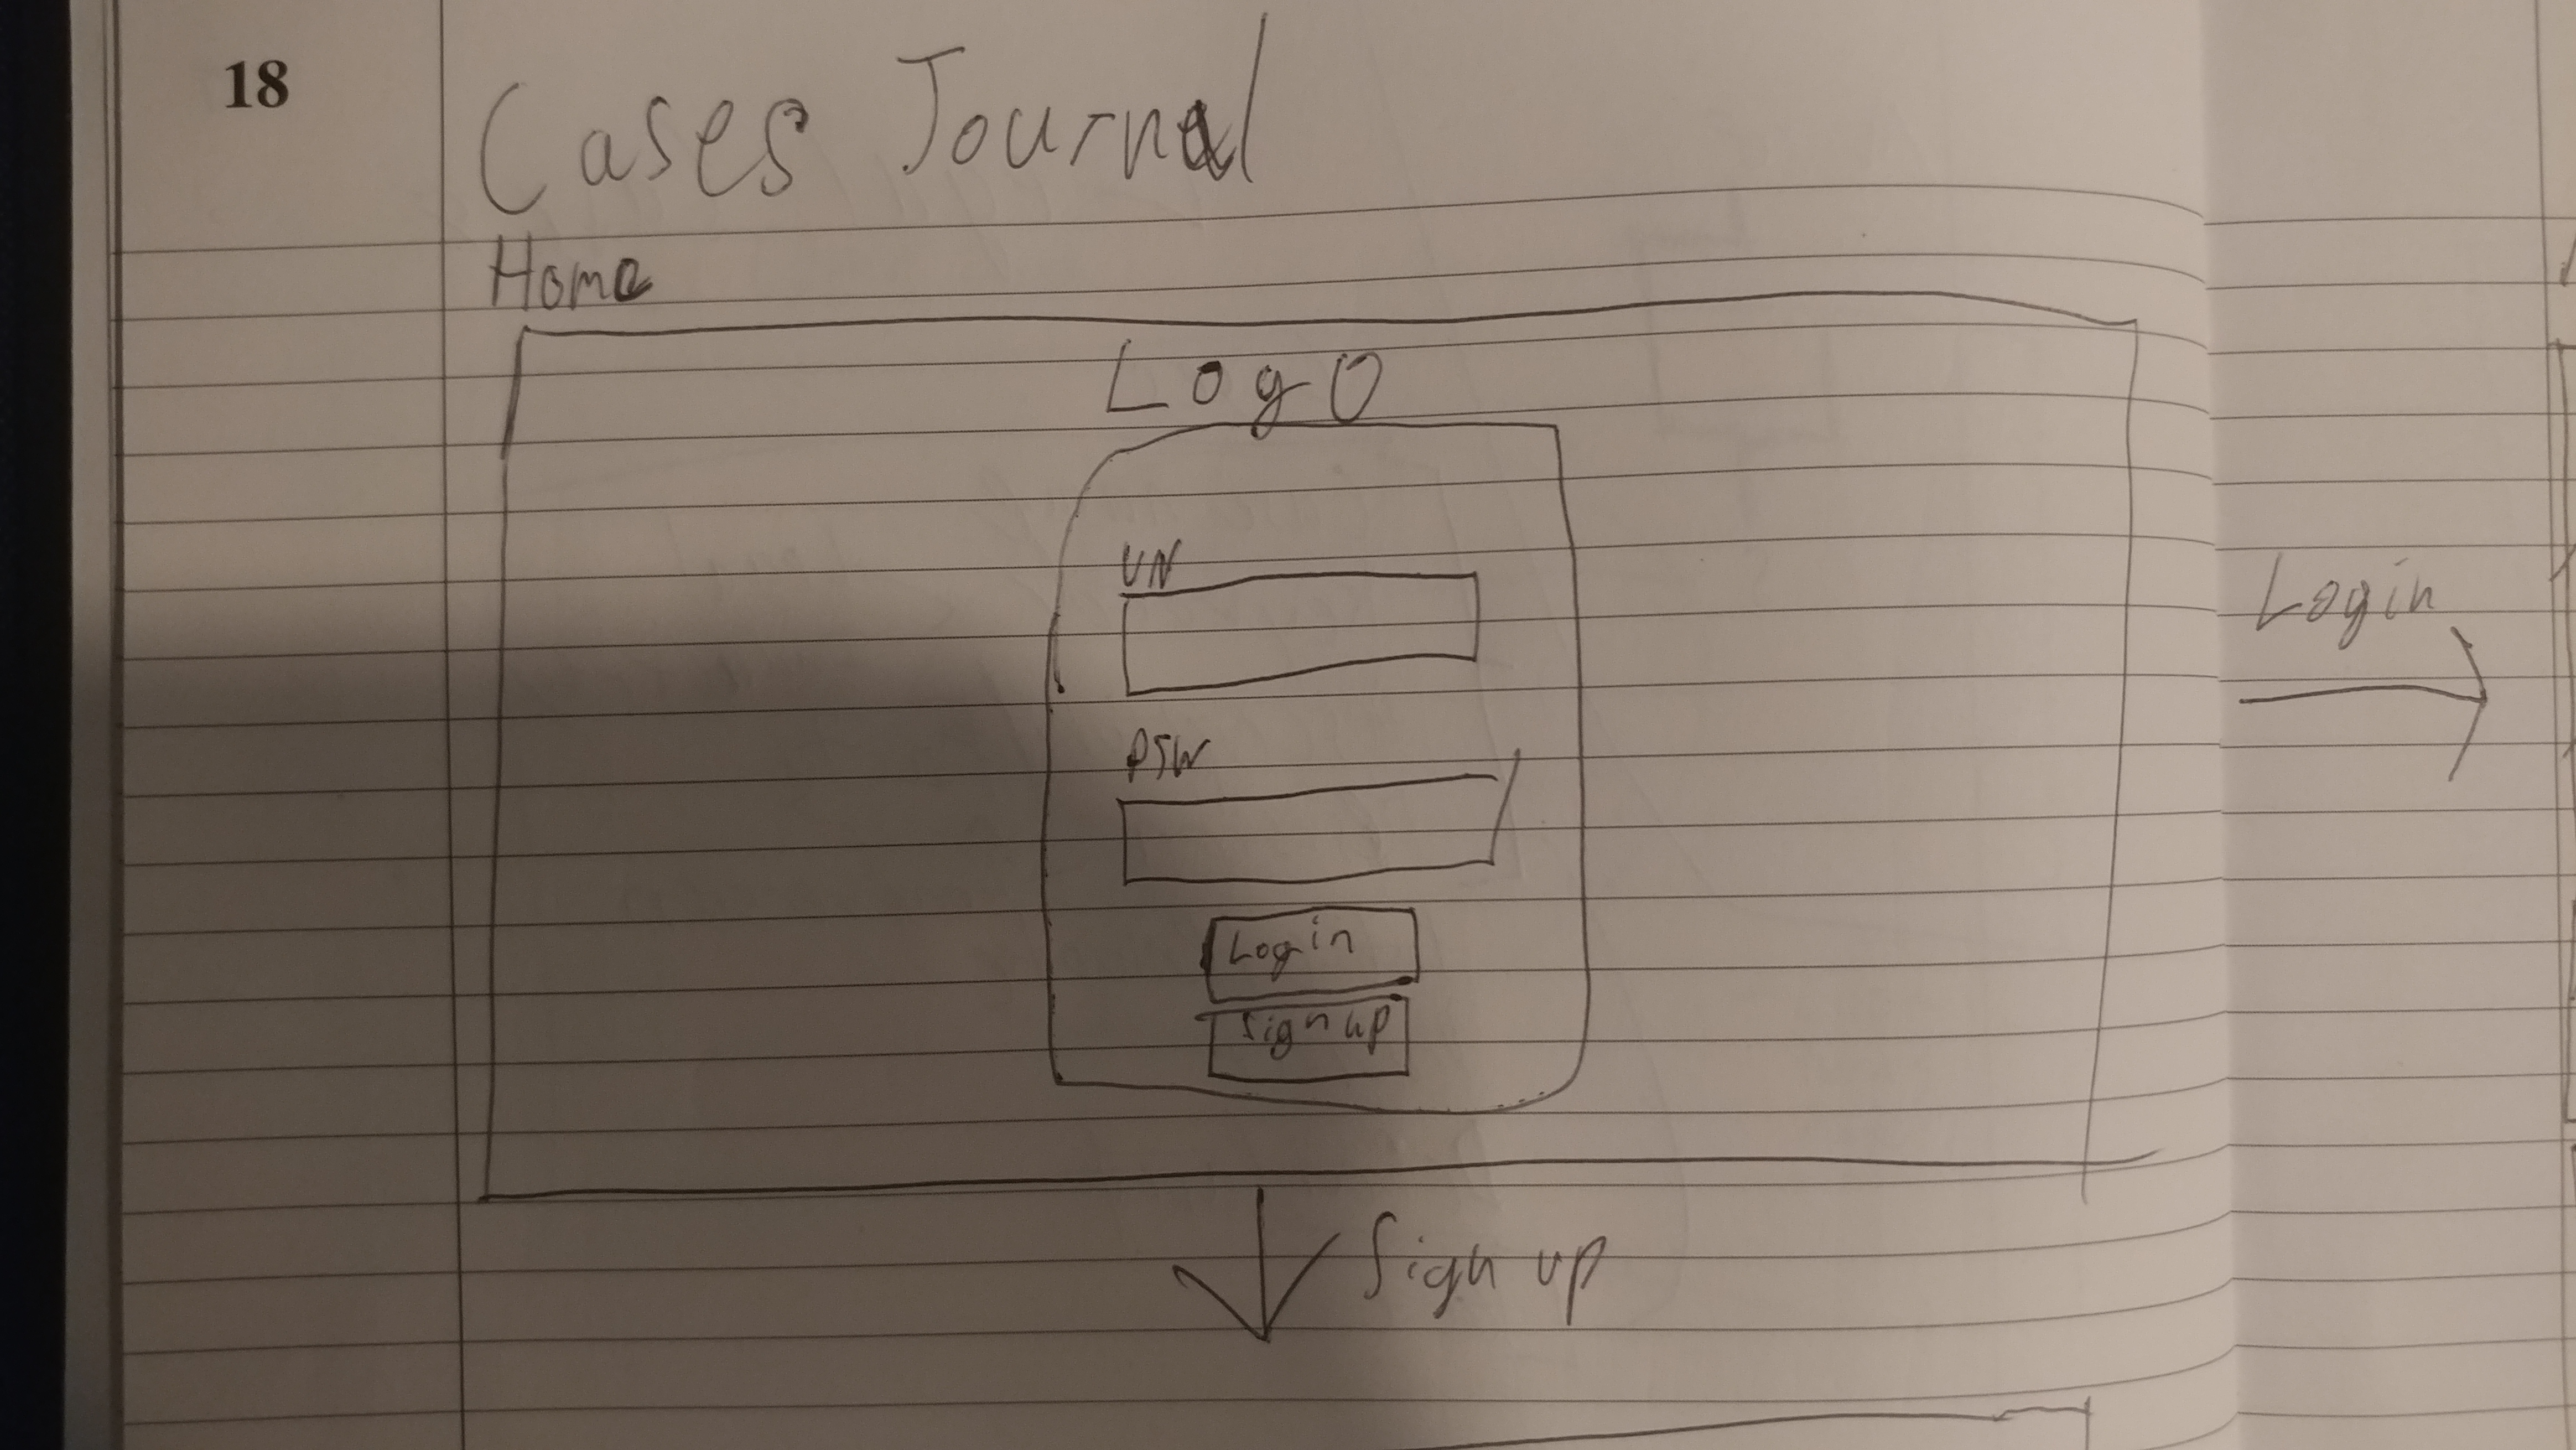 18
Cases Journal
Home
Logo
UN
PSW
Login
Sign up
Login
Sign up